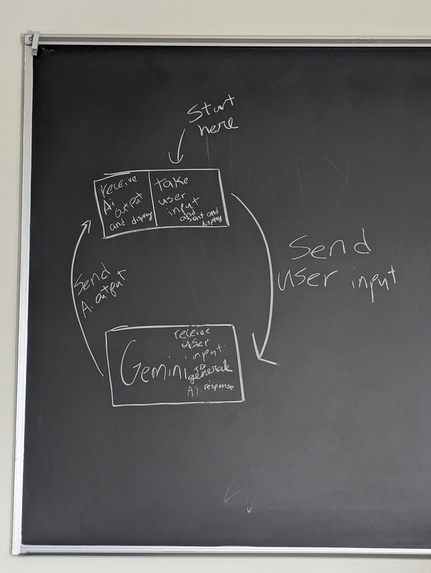 Start
here
receive
Ai
output
and display
take
user
input
and
and
display
Send
user input
Send
A. output
Gemini
receive
user
input
to
generate
A.I. response